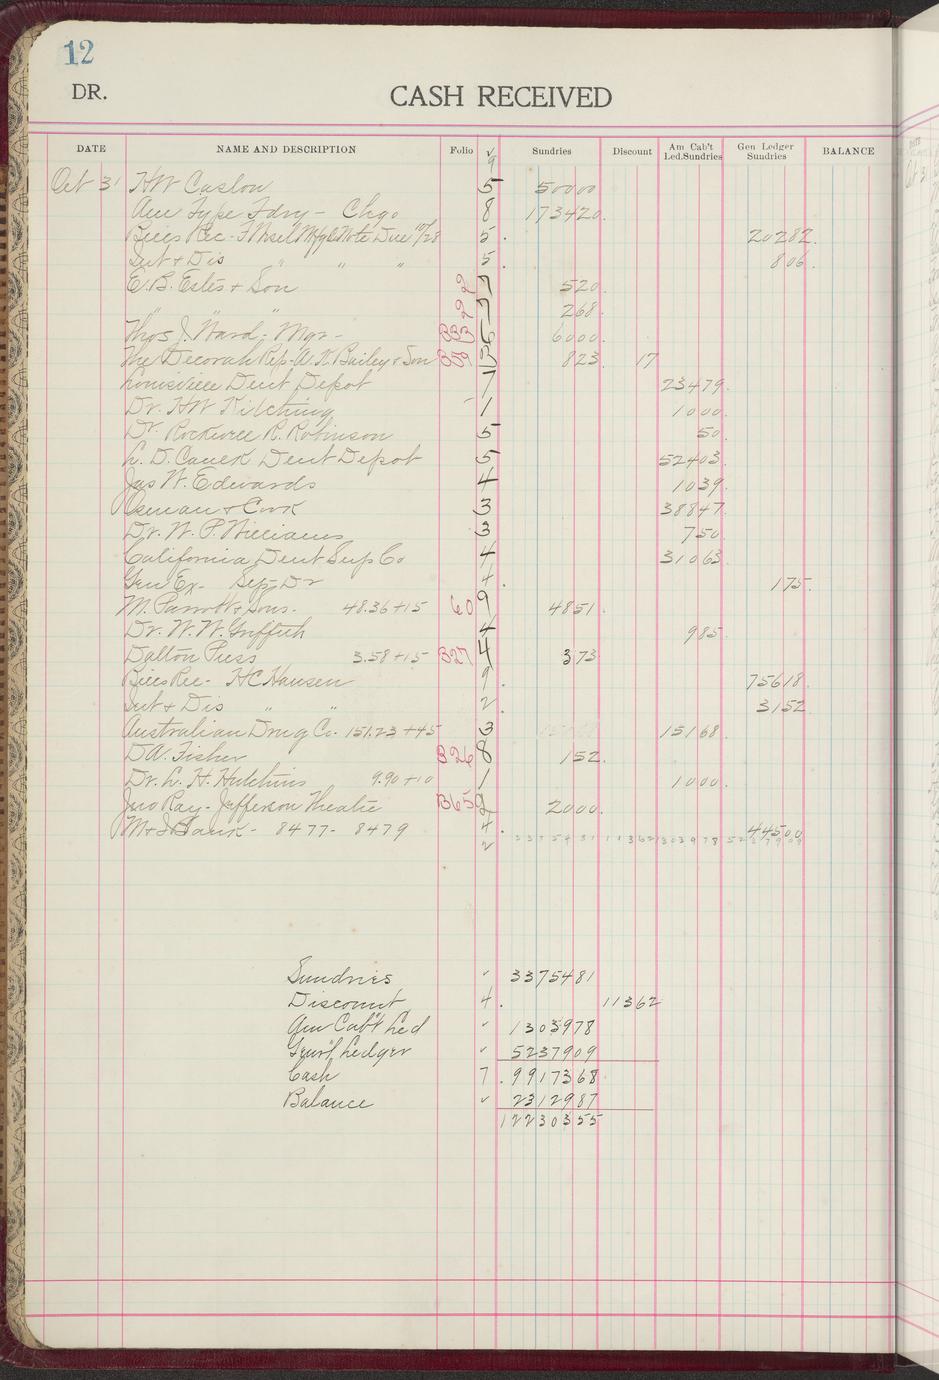 12
DR.
CASH RECEIVED
DATE NAME AND DESCRIPTION Folio Sundries Discount Am Cab't Led.Sundries Gen Ledger Sundries BALANCE
Oct 31 HW Caslon 5 50000
Am Type Fdry - Chgo 8 173420
Bills Rec - Mfg Co Note Due 10/28 5 20282
Int & Dis " " " 5 806
E.B. Estes & Son 2 7 520
2 7 268
Thos J. Ward - Mgr - B33 6 6000
The Decorah Rep - A.K. Bailey & Son B59 823 17
Louisville Dent Depot 7 23479
Dr. HW Kitching 1 1000
Dr. Rockwell R. Robinson 5 50
L. D. Caulk Dent Depot 5 52403
Jas W. Edwards 4 1039
Osman & Cook 3 38847
Dr. W. P. Williams 3 750
California Dent Sup Co 4 31063
Gen Ex - Sep Dr 4 175
M. Parrott & Sons. 48.36+15 60 9 4851
Dr. W. W. Griffith 4 985
Dalton Press 3.58+15 B27 4 373
Bills Rec - HC Hansen 9 75618
Int & Dis " " 2 3152
Australian Drug Co. 151.23+45 3 15168
DA. Fisher B26 8 152
Dr. L. H. Hutchins 9.90+10 1 1000
Jno Ray - Jefferson Theatre B65 2 2000
M&I Bank - 8477 - 8479 4 44500
3375481 11362 1303978 5237909
Sundries ✓ 3375481
Discount 4 11362
Am Cab't Led ✓ 1303978
Gen'l Ledger ✓ 5237909
Cash 7 9917368
Balance ✓ 2312987
12230355